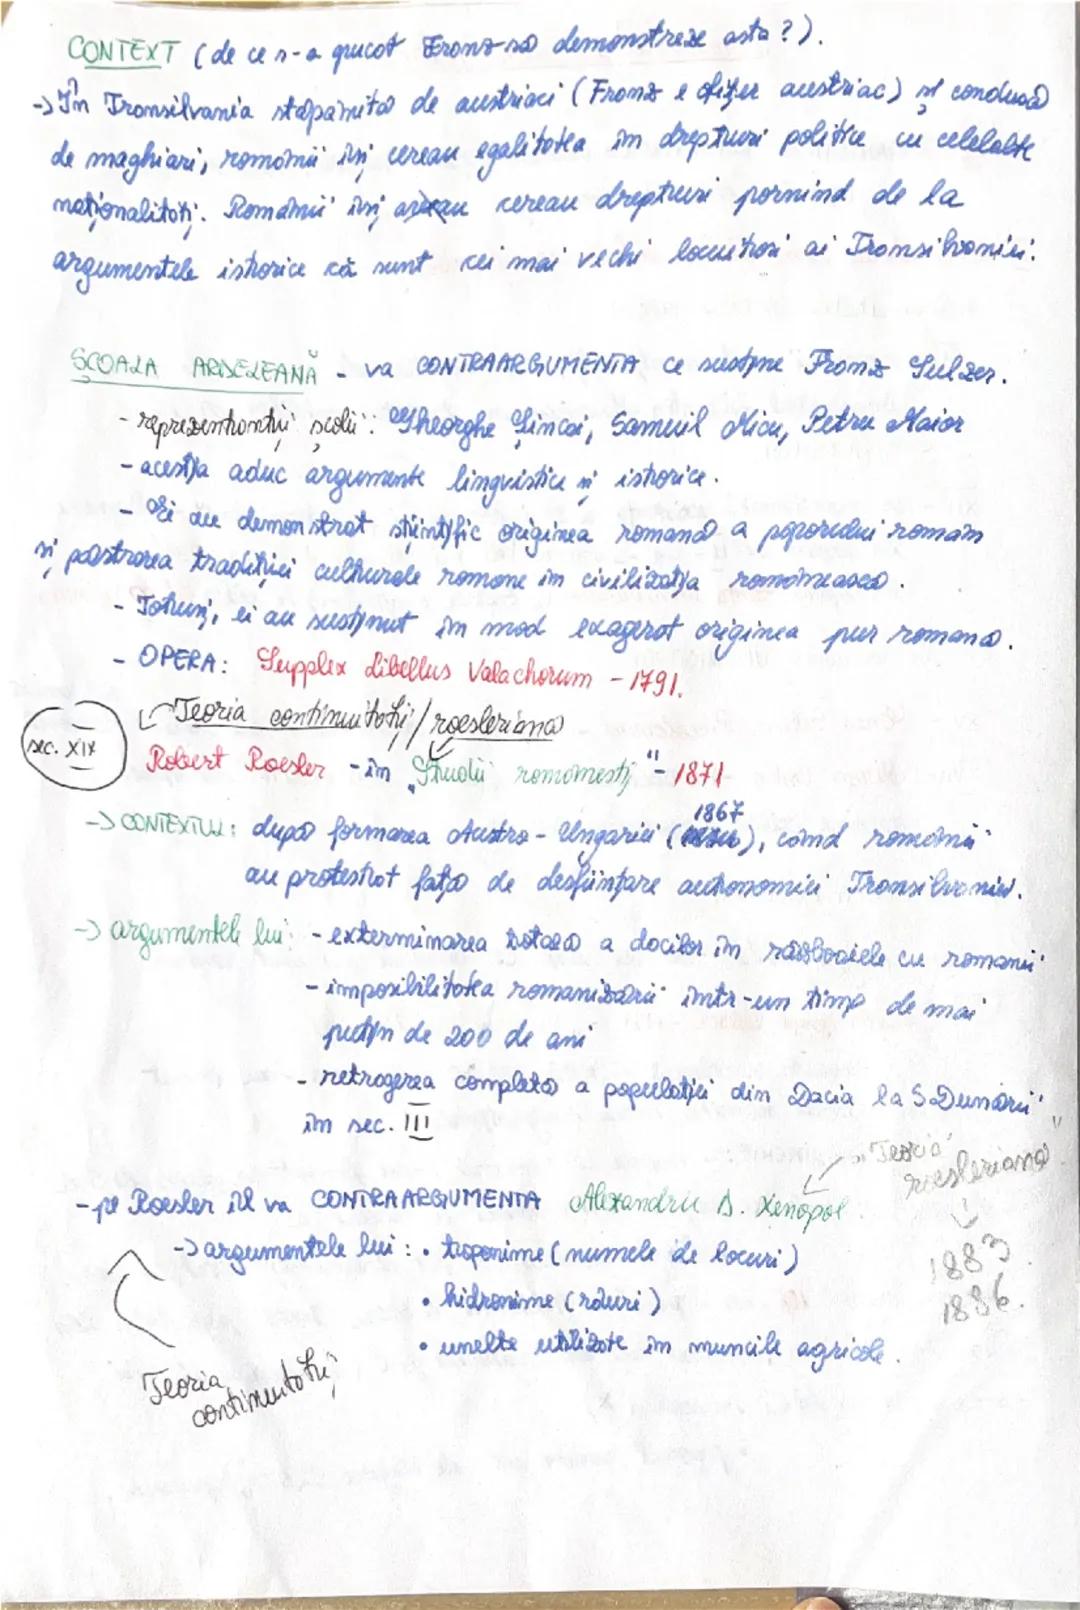 CONTEXT (de ce s-a apucat Franz să demonstreze asta?).
-> În Transilvania stăpânită de austrieci (Franz e ofițer austriac) și condusă
de maghiari, românii își cereau egalitatea în drepturi politice cu celelalte
naționalități. Românii își cereau drepturi pornind de la
argumentele istorice că sunt cei mai vechi locuitori ai Transilvaniei.
ȘCOALA ARDELEANĂ - va CONTRAARGUMENTA ce susține Franz Sulzer.
- reprezentanții școlii: Gheorghe Șincai, Samuil Micu, Petru Maior
- aceștia aduc argumente lingvistice și istorice.
- Ei au demonstrat științific originea romană a poporului român
și păstrarea tradiției culturale romane în civilizația românească.
- Totuși, ei au susținut în mod exagerat originea pur romană.
- OPERA: Supplex Libellus Valachorum - 1791.
Teoria continuității/roesleriană
sec. XIX
Robert Roesler - în „Studii românești" - 1871
1867
-> CONTEXTUL: după formarea Austro-Ungariei ( ), când românii
au protestat față de desființare autonomiei Transilvaniei.
-> argumentele lui: - exterminarea totală a dacilor în războaiele cu romanii
- imposibilitatea romanizării într-un timp de mai
puțin de 200 de ani
- retragerea completă a populației din Dacia la S Dunării
în sec. III
„Teoria
roesleriană"
- pe Roesler îl va CONTRAARGUMENTA Alexandru D. Xenopol
-> argumentele lui: • toponime (numele de locuri)
1883
• hidronime (râuri)
1886.
• unelte utilizate în muncile agricole.
Teoria
continuității